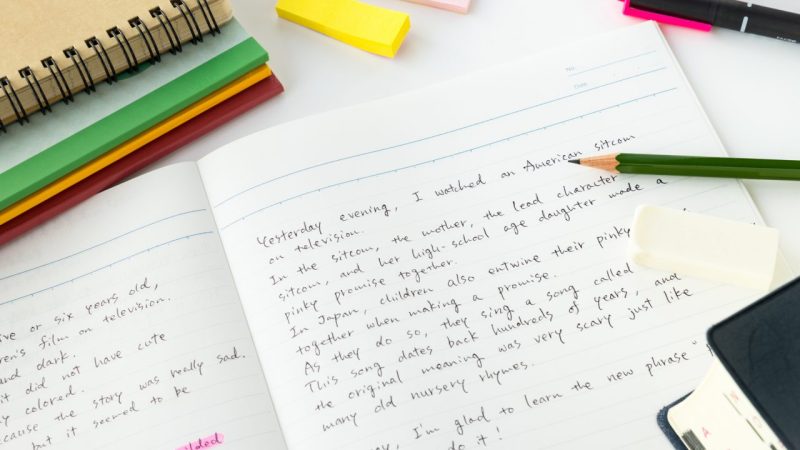 ive or six years old,
en's film on television.
and dark.
it did not have cute
y colored.
cause the story was really sad.
but it seemed to be
No.
Date
Yesterday evening, I watched an American sitcom
on television.
In the sitcom, the mother, the lead character
sitcom, and her high-school age daughter made a
pinky promise together.
In Japan, children also entwine their pinky
together when making a promise.
As they do so, they sing a song called
This song dates back hundreds of years, and
the original meaning was very scary just like
many old nursery rhymes.
I'm glad to learn the new phrase "
do it!
A